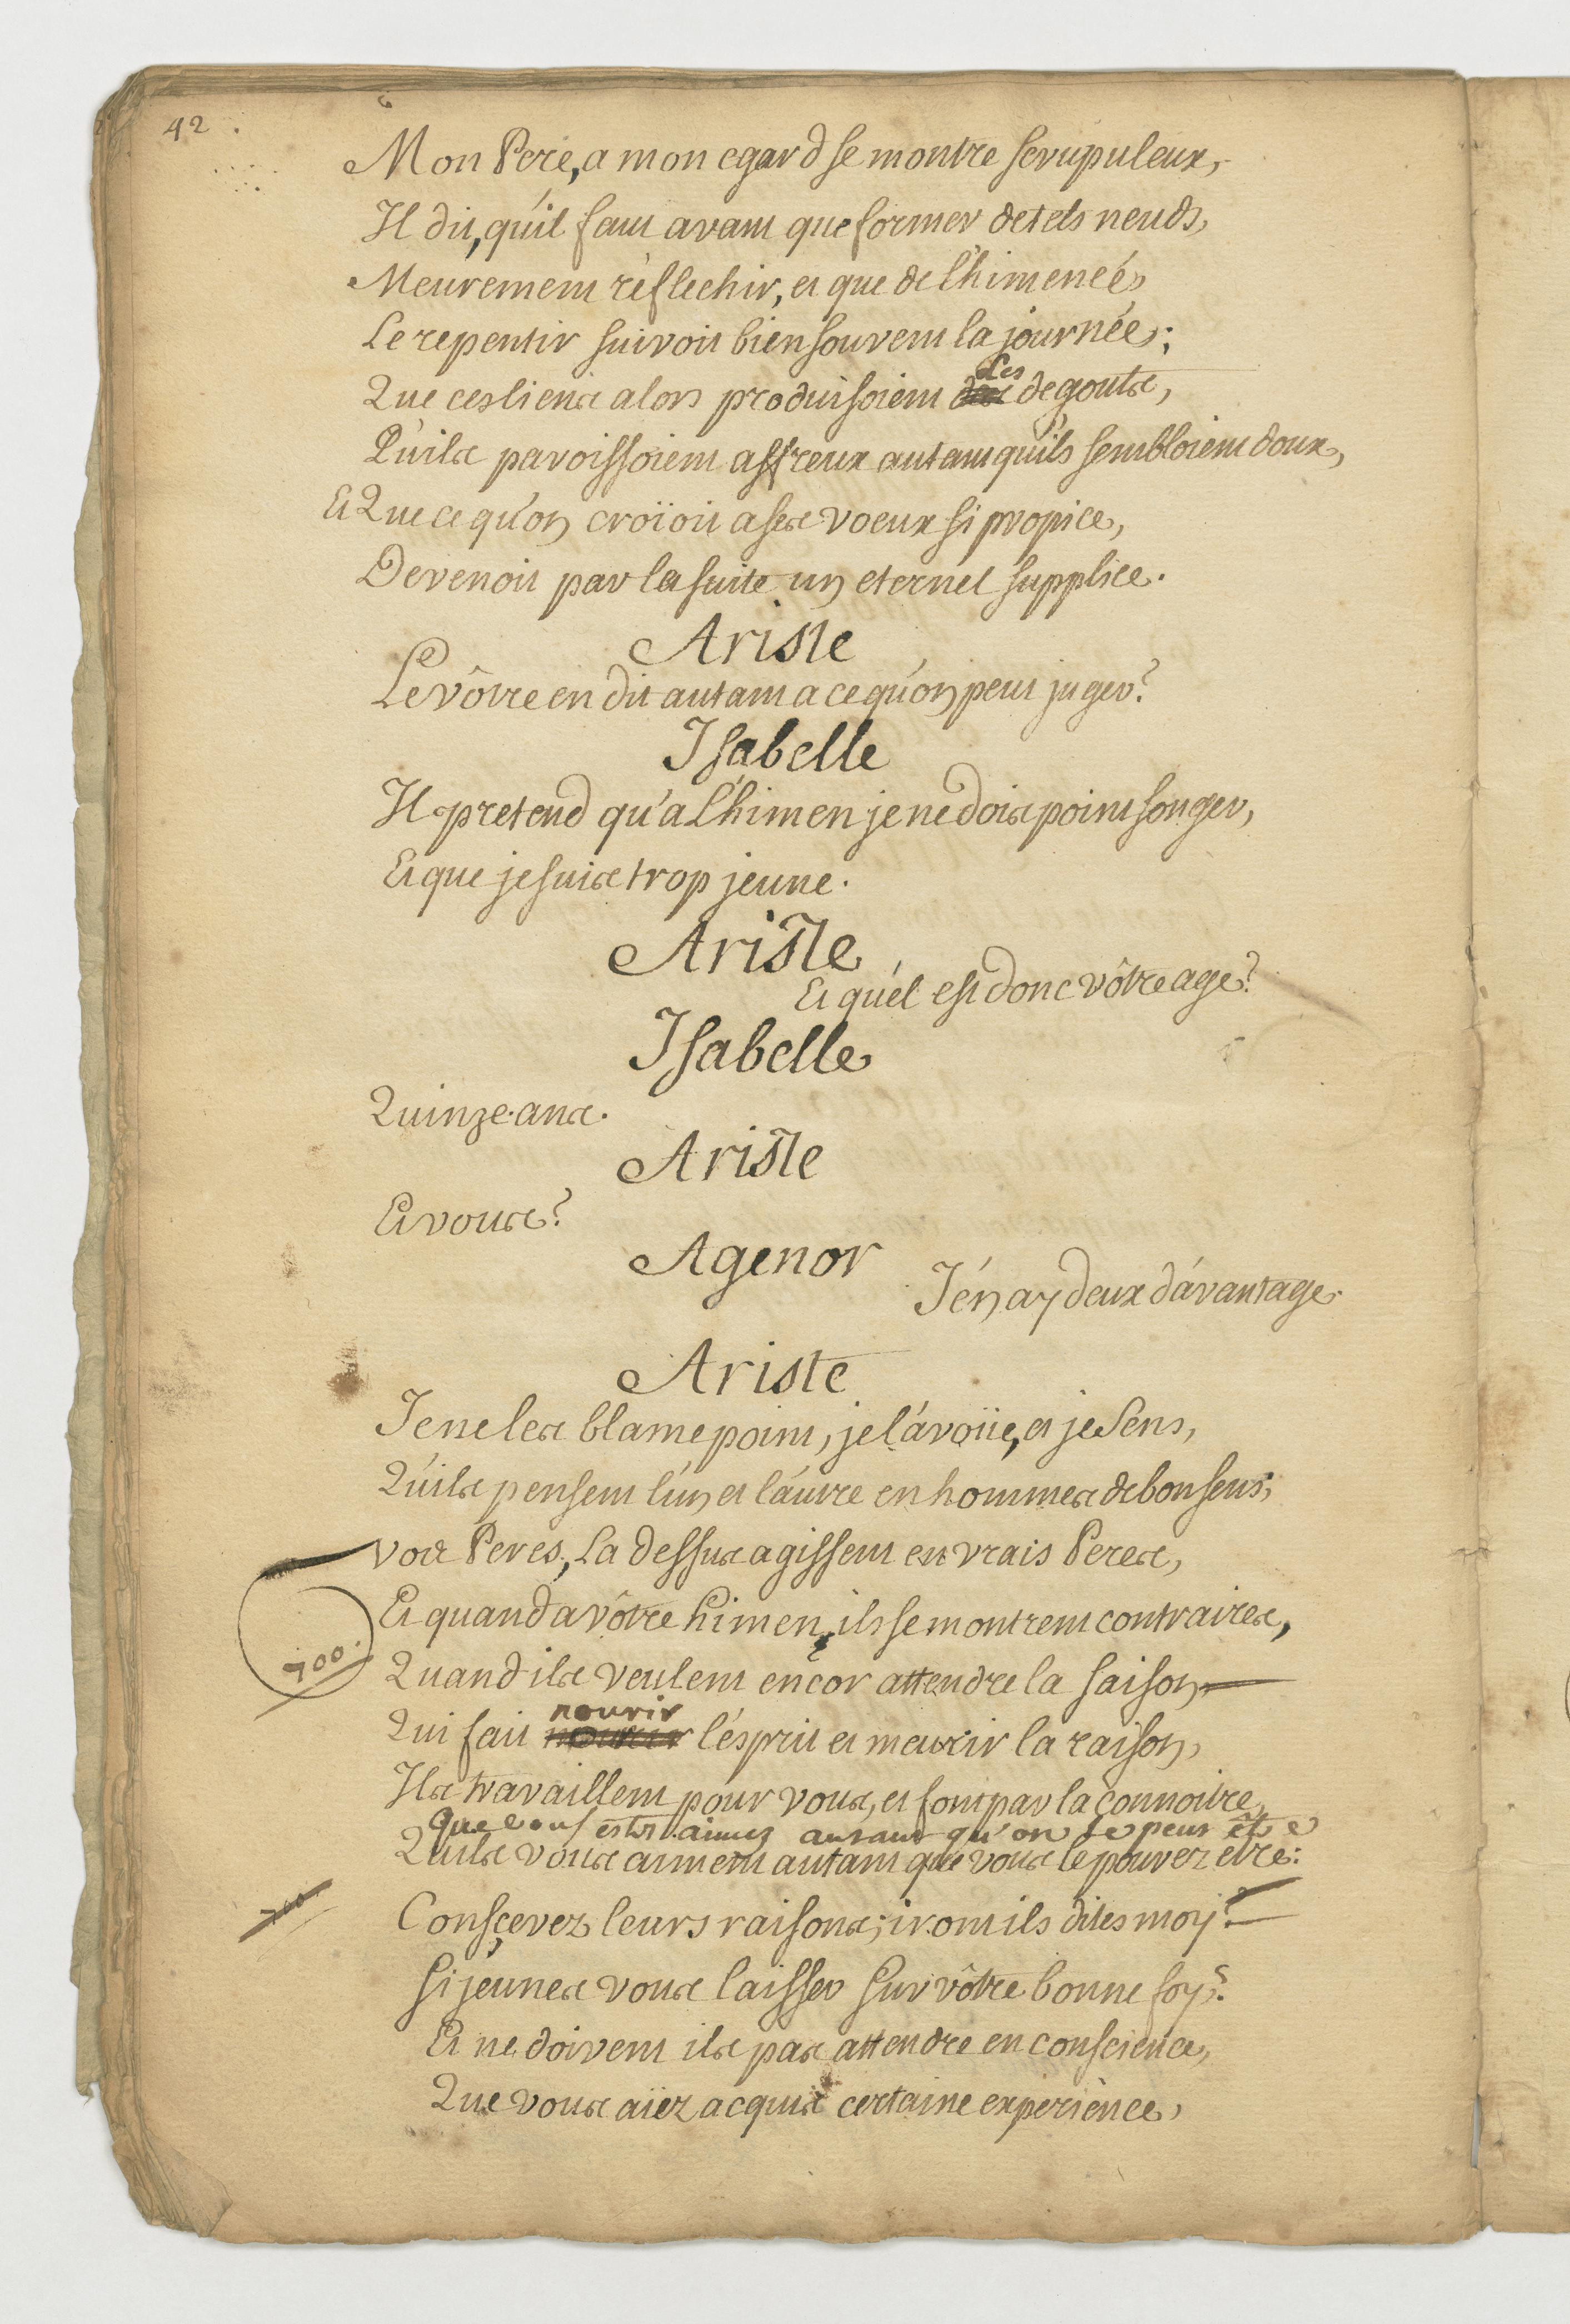 42
Mon Pere, a mon egard se montre scrupuleux,
Il dit, qu'il faut avant que former de tels neuds,
Meurement réflechir, et que de l'himeneé
Le repentir suivoit bien souvent la journée;
Que ces liens alors produisoient des degouts,
Qu'ils paroissoient affreux autant qu'ils sembloient doux,
Et Que ce qu'on croïoit a ses voeux si propice,
Devenoit par la suite un eternel supplice.
Ariste
Le vôtre en dit autant a ce qu'on peut juger?
Isabelle
Il pretend qu'a L'himen je ne dois point songer,
Et que je suis trop jeune.
Ariste
Et qu'el est donc vôtre age?
Isabelle
Quinze ans.
Ariste
Et vous?
Agenor
J'én ay deux d'avantage.
Ariste
Je ne les blame point, je l'avoüe, et je Sens,
Qu'ils pensent l'un et l'autre en hommes de bon sens;
Vos Peres, La dessus agissent en vrais Peres,
Et quand a vôtre himen, ils se montrent contraires,
700. Quand ils veulent encor attendre la saison
nourir
Qui fait l'ésprit et meurir la raison,
Ils travaillent pour vous, et font par la connoitre
Que vous estes aimez autant qu'on le peut être
Qu'ils vous aiment autant que vous le pouvez etre:
700 Conscevez leurs raisons; iront ils dites moy?
Si jeunes vous laisser Sur vôtre bonne foy?
Et ne doivent ils pas attendre en conscience,
Que vous aïez acquis certaine experience,